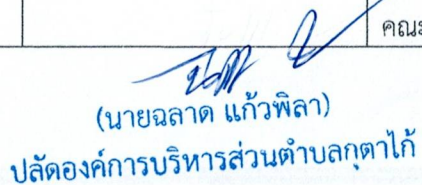 คณะ
(นายฉลาด แก้วพิลา)
ปลัดองค์การบริหารส่วนตำบลกุตาไก้